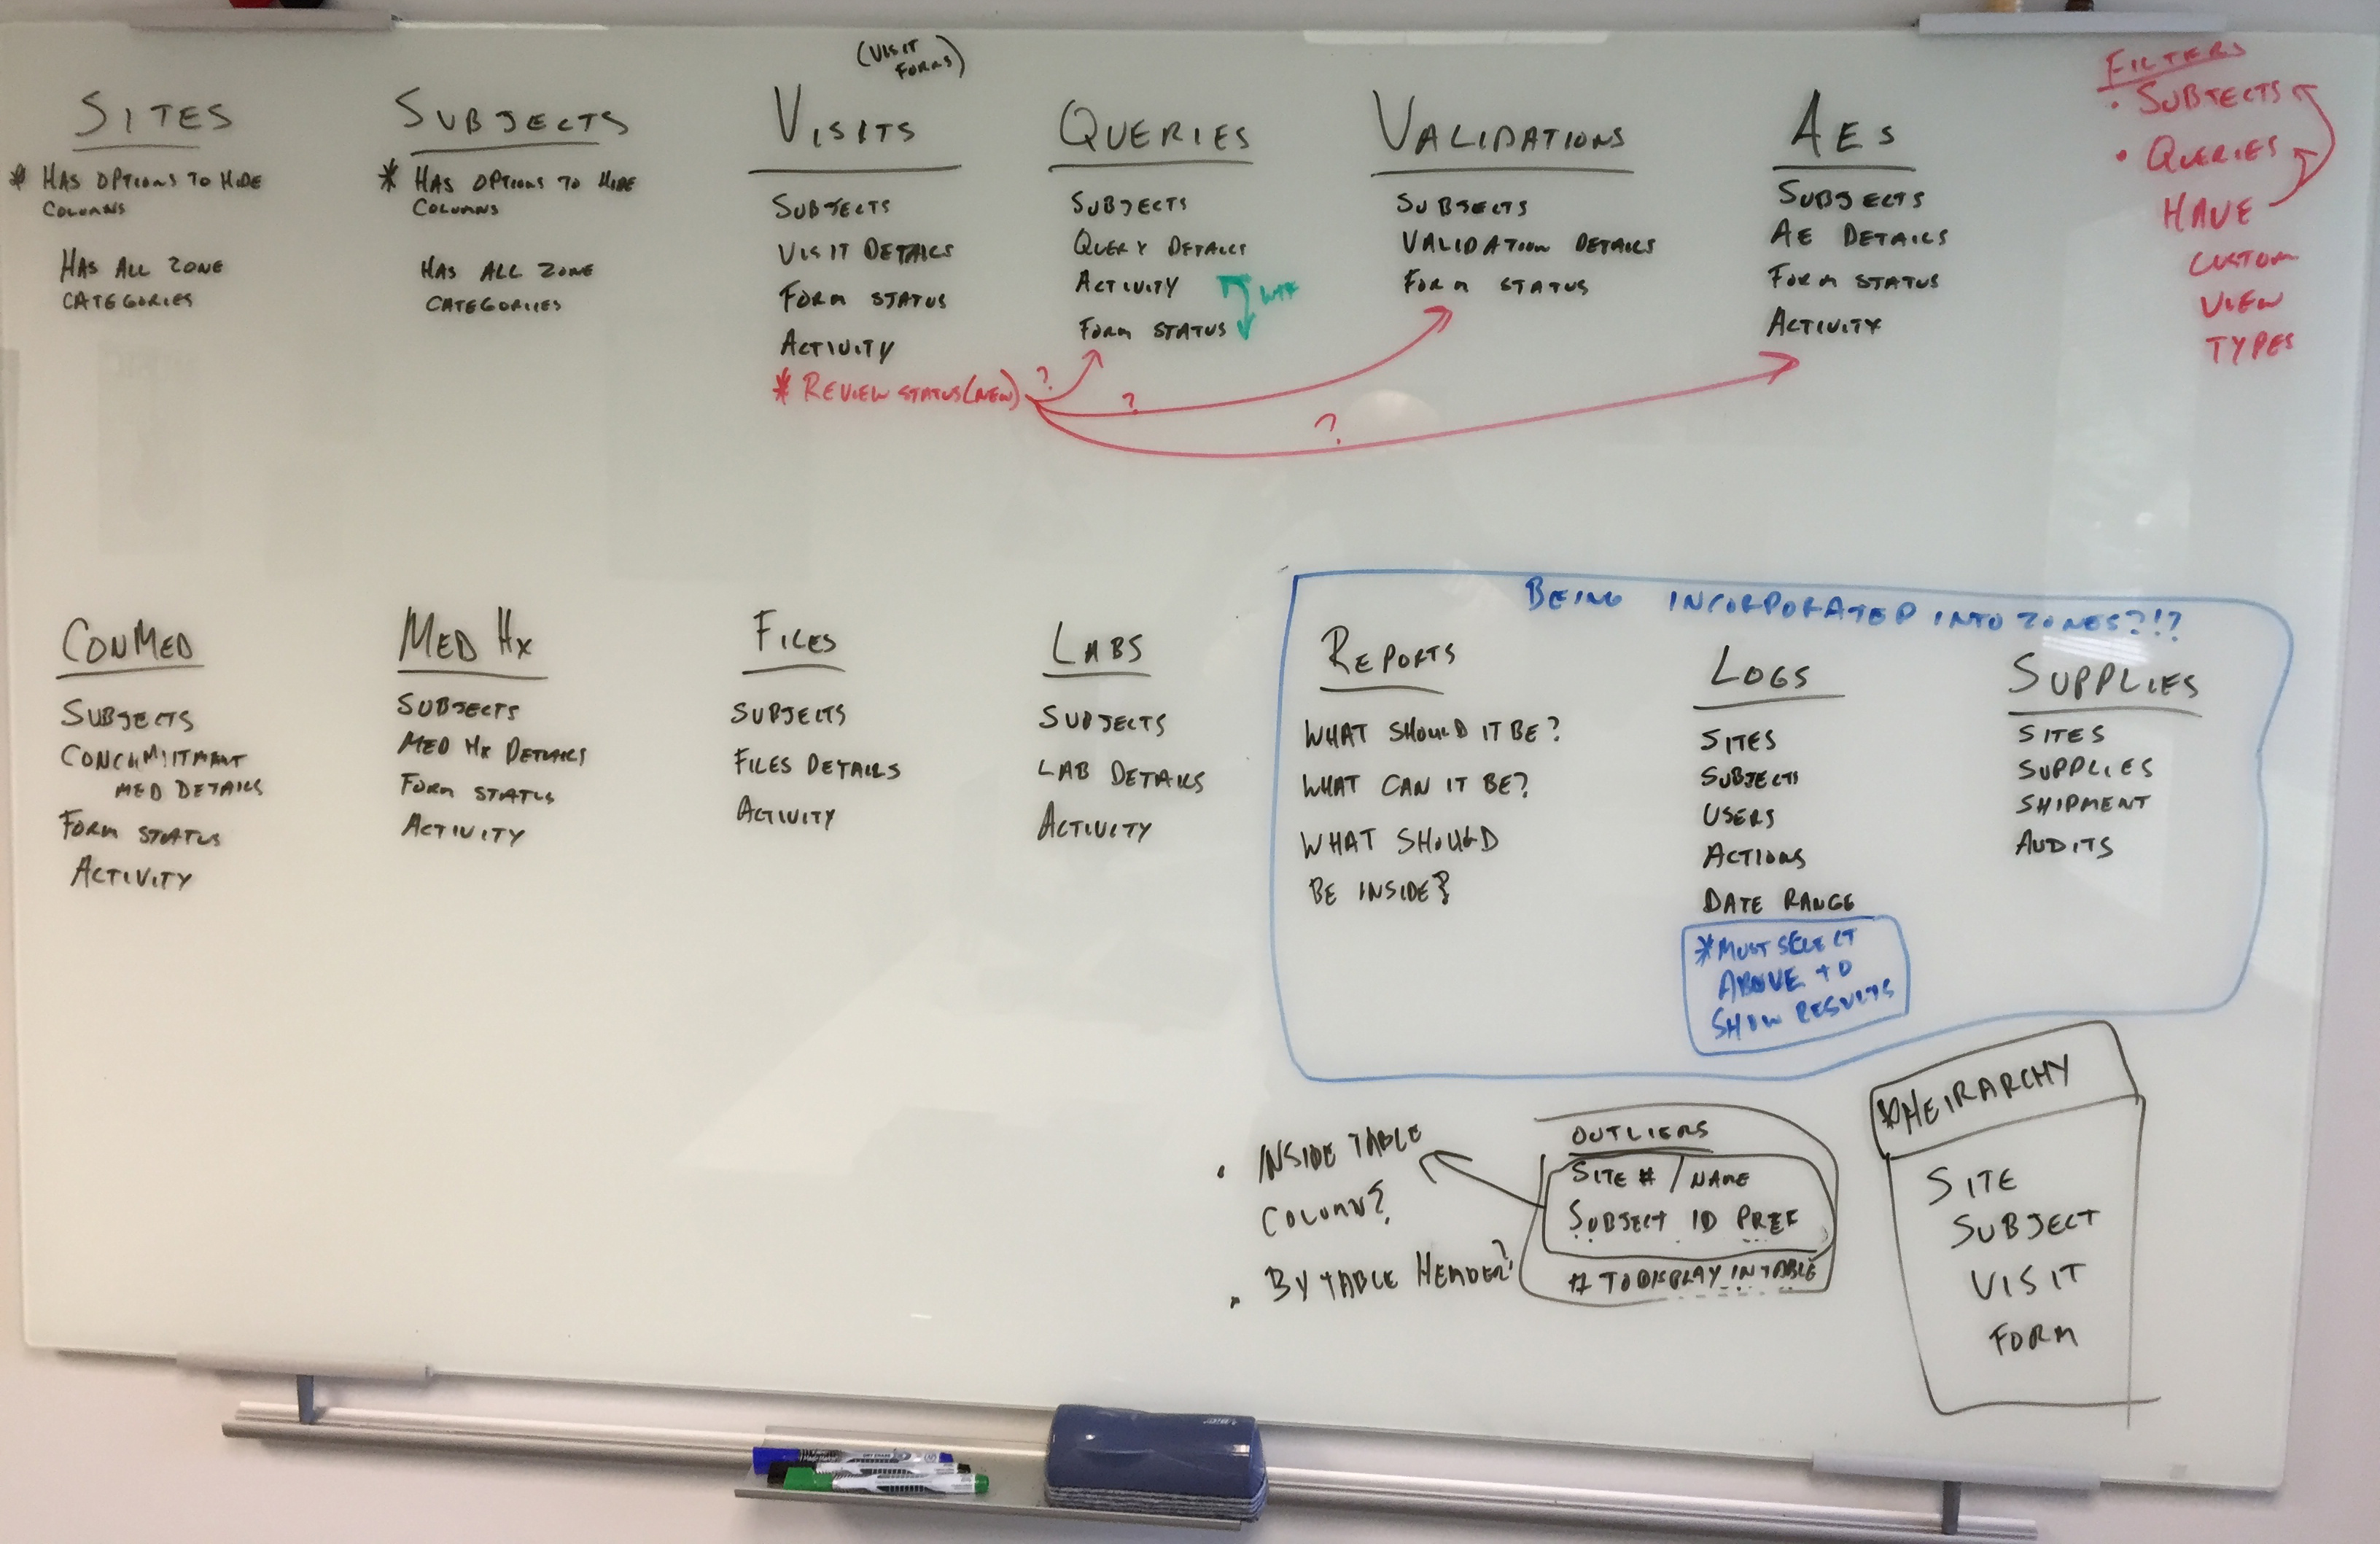 (VISIT
FORMS)
SITES
* HAS OPTIONS TO HIDE
COLUMNS
HAS ALL ZONE
CATEGORIES
SUBJECTS
* HAS OPTIONS TO HIDE
COLUMNS
HAS ALL ZONE
CATEGORIES
VISITS
SUBJECTS
VISIT DETAILS
FORM STATUS
ACTIVITY
* REVIEW STATUS (NEW)
?
?
?
QUERIES
SUBJECTS
QUERY DETAILS
ACTIVITY
FORM STATUS
WTF
VALIDATIONS
SUBJECTS
VALIDATION DETAILS
FORM STATUS
AES
SUBJECTS
AE DETAILS
FORM STATUS
ACTIVITY
FILTERS
• SUBJECTS
• QUERIES
HAVE
CUSTOM
VIEW
TYPES
CONMED
SUBJECTS
CONCHMITMENT
MED DETAILS
FORM STATUS
ACTIVITY
MED HX
SUBJECTS
MED HX DETAILS
FORM STATUS
ACTIVITY
FILES
SUBJECTS
FILES DETAILS
ACTIVITY
LABS
SUBJECTS
LAB DETAILS
ACTIVITY
BEING INCORPORATED INTO ZONES?!?
REPORTS
WHAT SHOULD IT BE?
WHAT CAN IT BE?
WHAT SHOULD
BE INSIDE?
LOGS
SITES
SUBJECTS
USERS
ACTIONS
DATE RANGE
*MUST SELECT
ABOVE TO
SHOW RESULTS
SUPPLIES
SITES
SUPPLIES
SHIPMENT
AUDITS
• INSIDE TABLE
COLUMN?
• BY TABLE HEADER?
OUTLIERS
SITE # / NAME
SUBJECT ID PREF
# TO DISPLAY IN TABLE
*HEIRARCHY
SITE
SUBJECT
VISIT
FORM